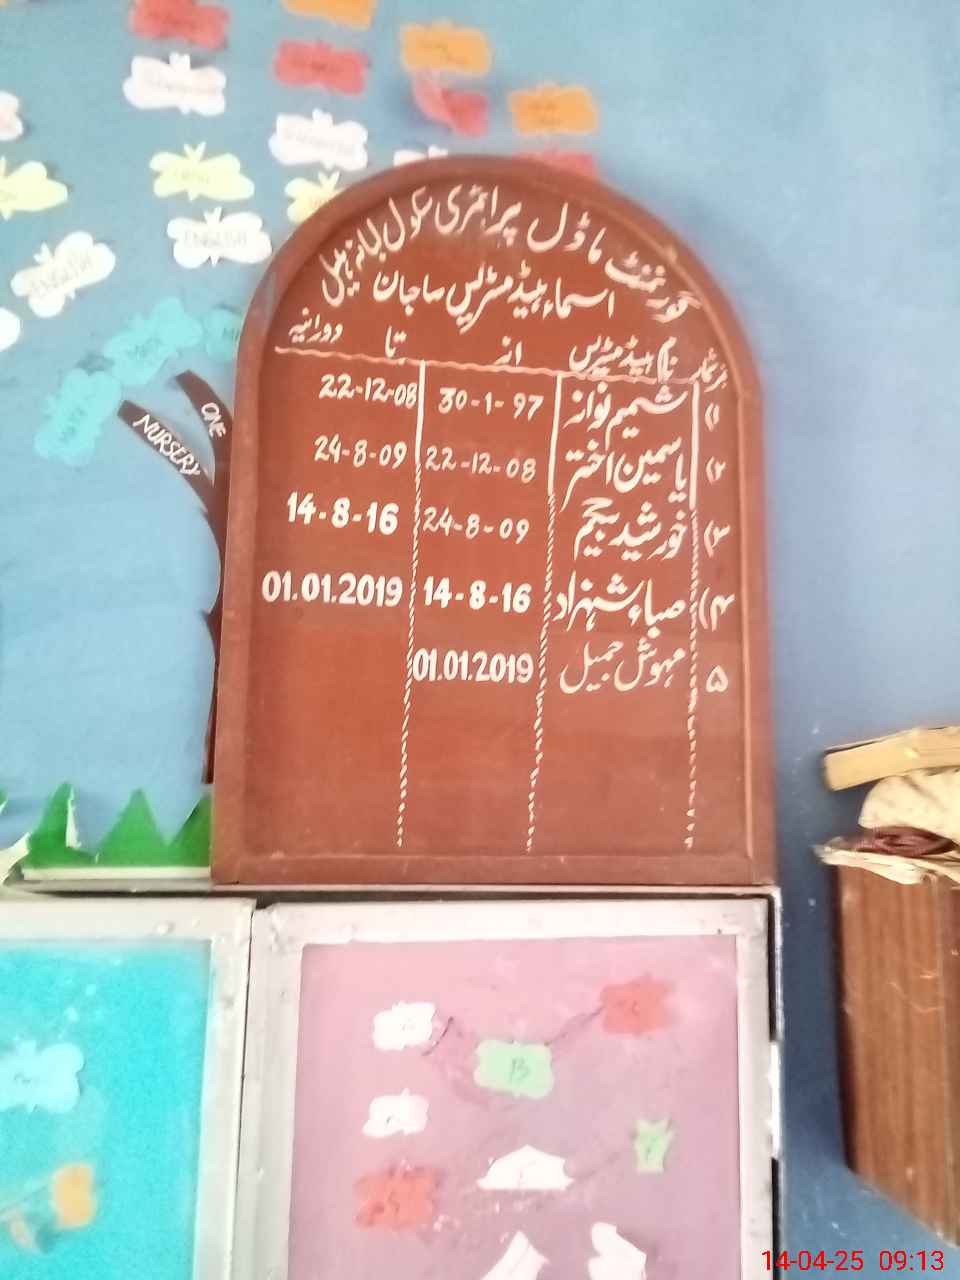 گورنمنٹ ماڈل پرائمری سکول
اسماء ہیڈمسٹریس صاحبان
نمبر شمار نام ہیڈمسٹریس از تا دورانیہ
(۱ شمیم نواز 30-1-97 22-12-08
(۲ یاسمین اختر 22-12-08 24-8-09
(۳ خورشید بیگم 24-8-09 14-8-16
(۴ صباء شہزاد 14-8-16 01.01.2019
۵ مہوش جمیل 01.01.2019
ENGLISH
ENGLISH
MATH
ONE
NURSERY
B
14-04-25 09:13